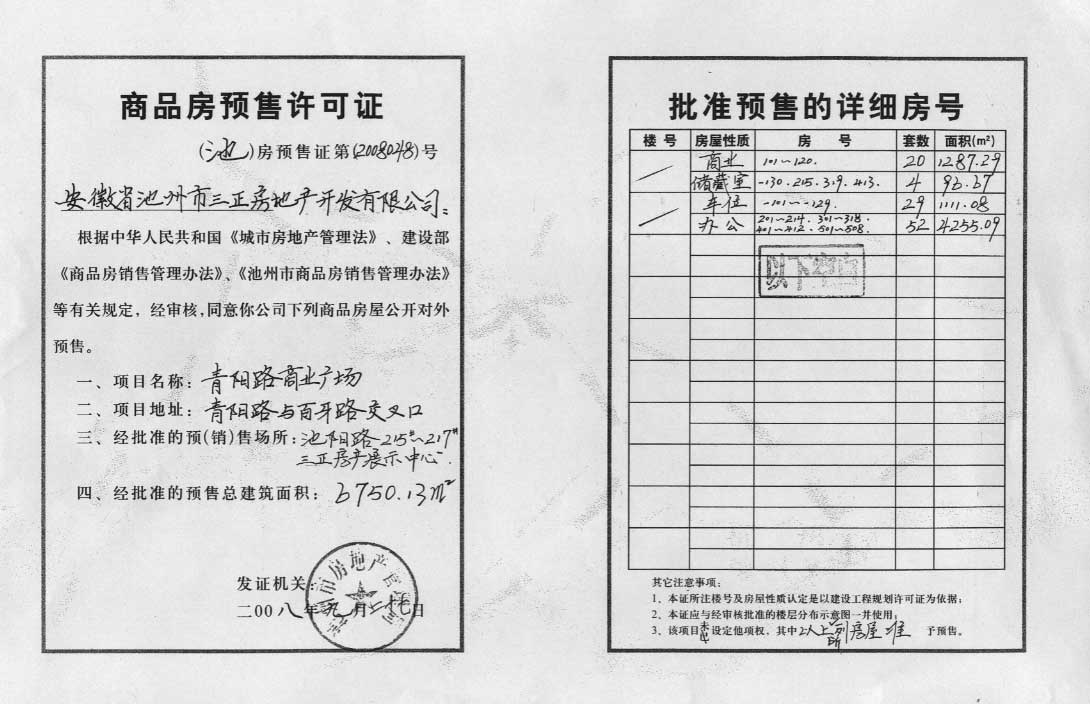 商品房预售许可证
(池)房预售证第(2008048)号
安徽省池州市三正房地产开发有限公司:
根据中华人民共和国《城市房地产管理法》、建设部
《商品房销售管理办法》、《池州市商品房销售管理办法》
等有关规定，经审核,同意你公司下列商品房屋公开对外
预售。
一、项目名称: 青阳路商业广场
二、项目地址: 青阳路与百牙路交叉口
三、经批准的预(销)售场所: 池阳路215#~217#
三正房产展示中心.
四、经批准的预售总建筑面积: 6750.13m²
发证机关:
二00八年九月二十七日
批准预售的详细房号
楼号 房屋性质 房号 套数 面积(m²)
商业 101~120. 20 1287.29
储藏室 -130.215.319.413. 4 96.67
车位 -101~-129. 29 1111.08
办公 201~214.301~318. 52 4255.09
401~412.501~508.
以下空白
其它注意事项:
1、本证所注楼号及房屋性质认定是以建设工程规划许可证为依据;
2、本证应与经审核批准的楼层分布示意图一并使用;
3、该项目未设定他项权, 其中以上所列房屋准予预售。